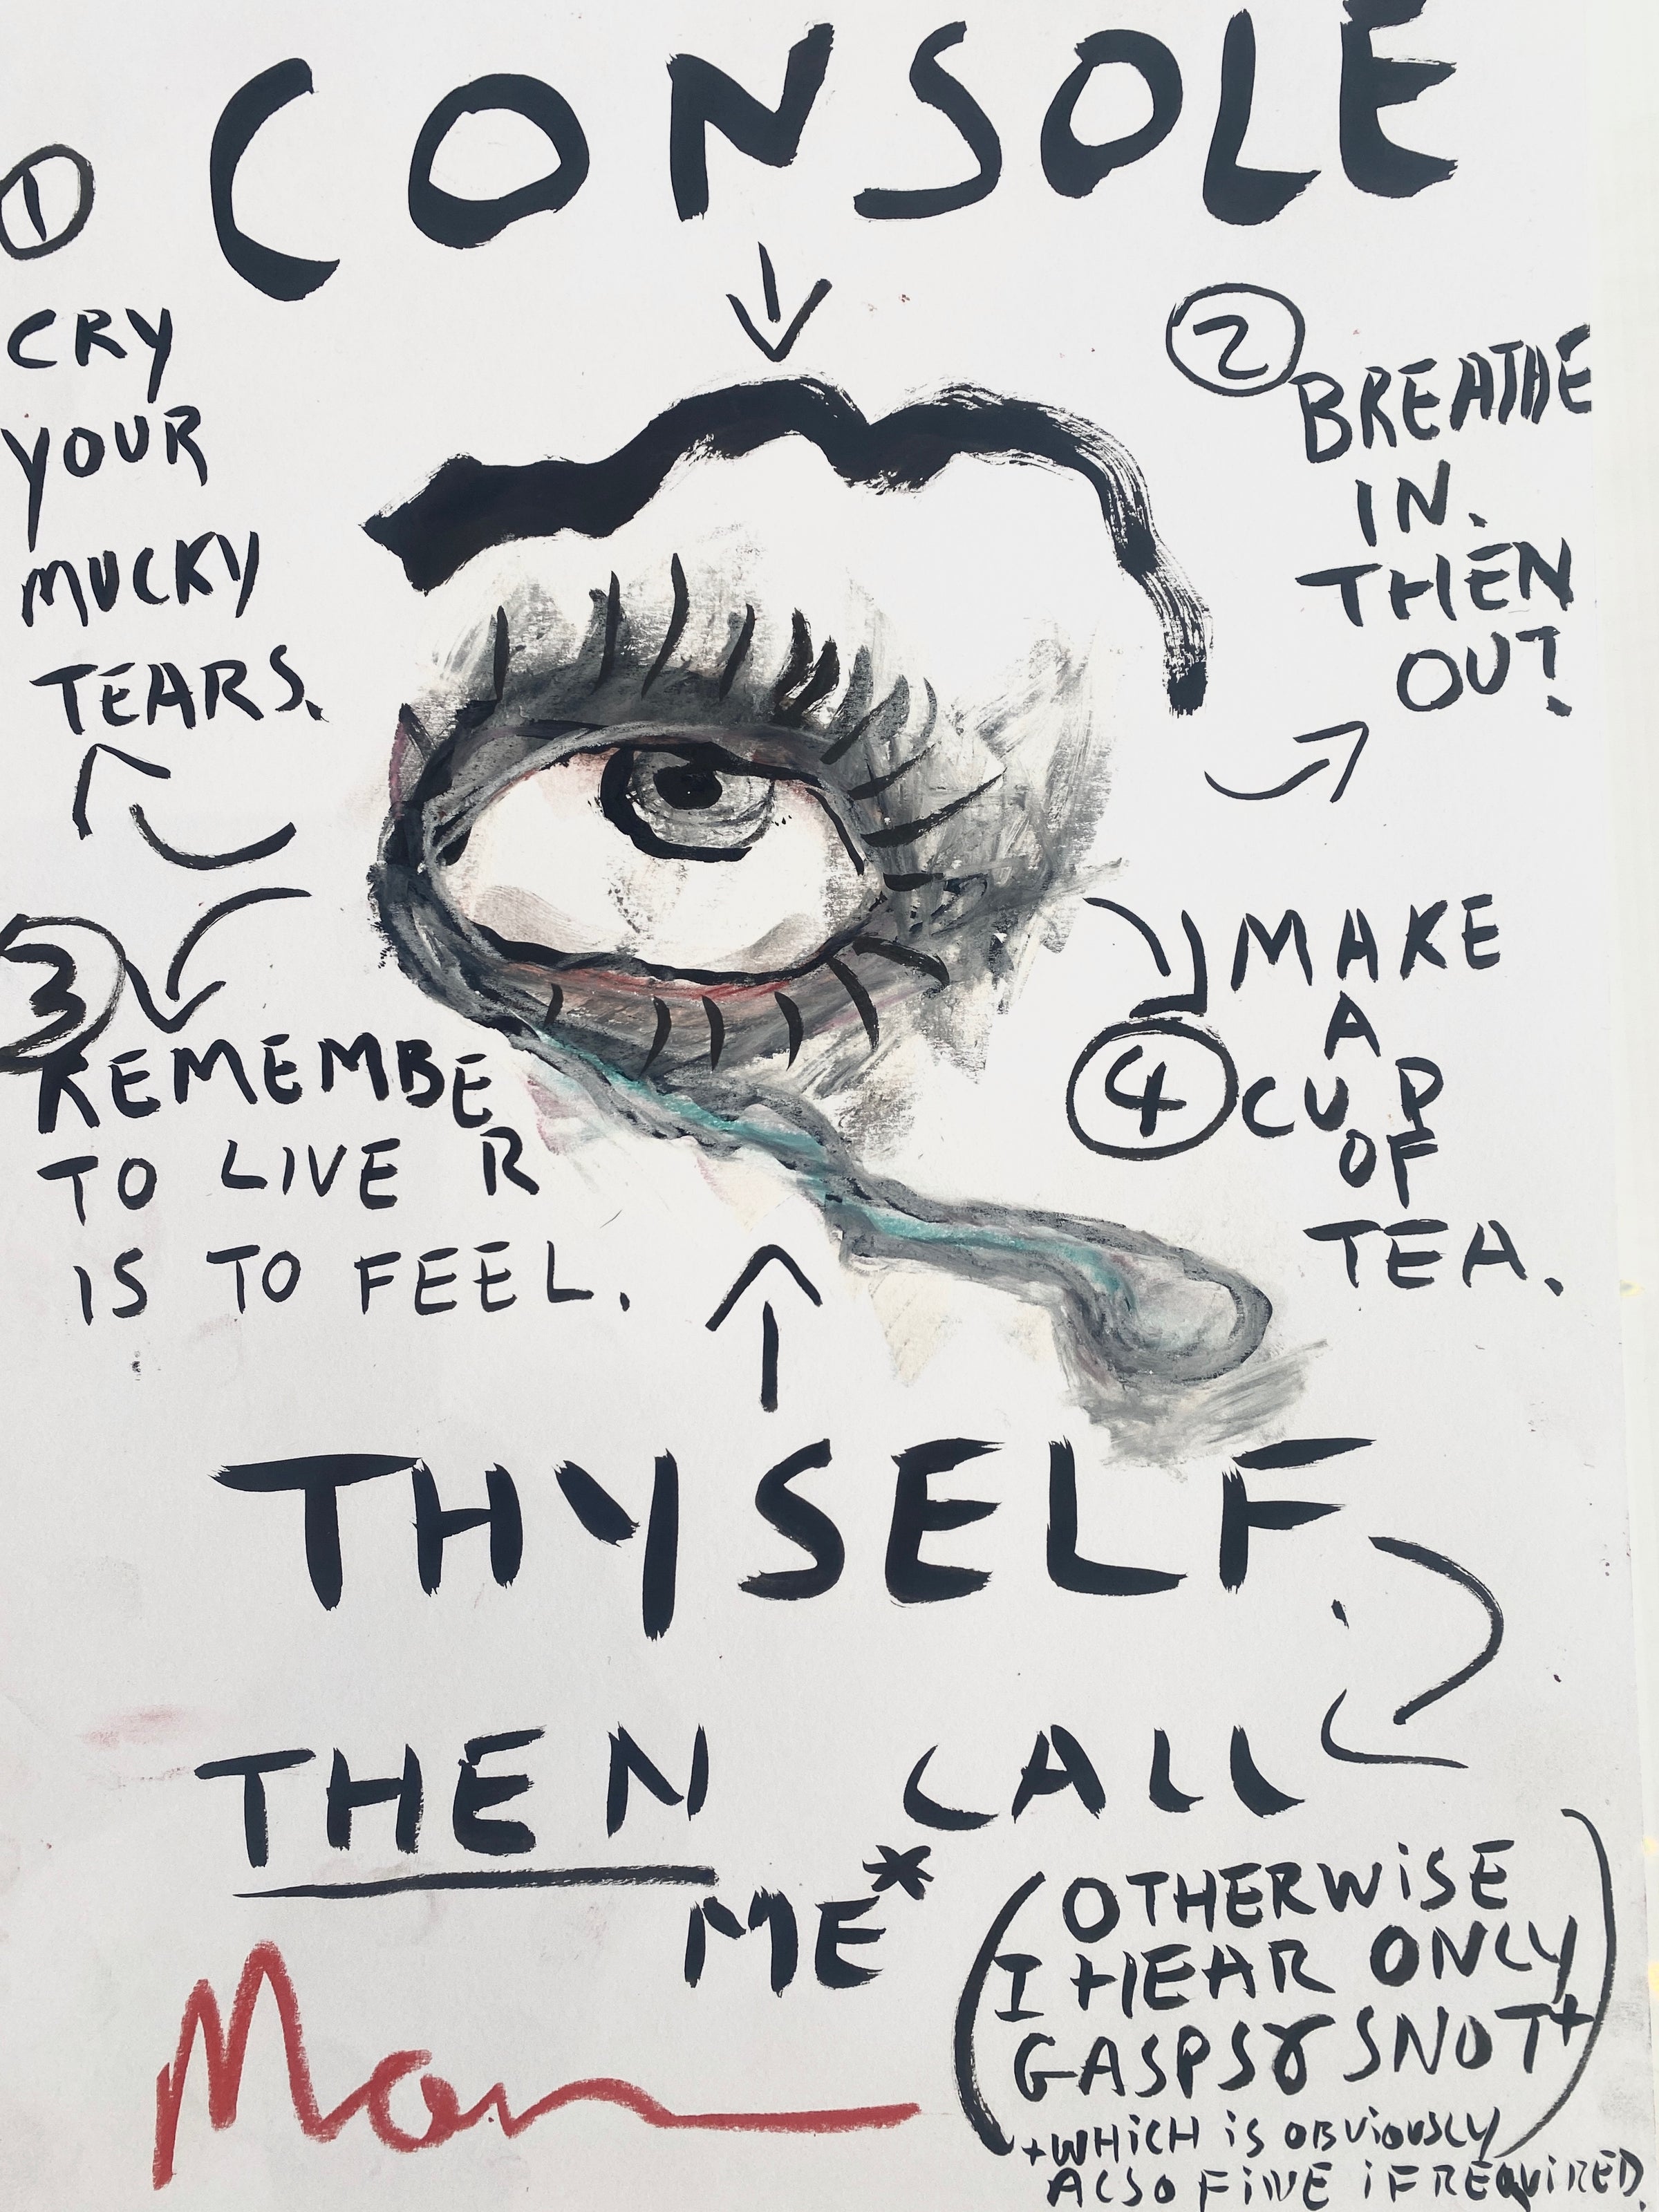 CONSOLE
①
CRY
YOUR
MUCKY
TEARS.
②
BREATHE
IN.
THEN
OUT.
③
REMEMBER
TO LIVE
IS TO FEEL.
④
MAKE
A
CUP
OF
TEA.
THYSELF.
THEN CALL
ME*
(OTHERWISE
I HEAR ONLY
GASPS & SNOT+)
+WHICH IS OBVIOUSLY
ALSO FINE IF REQUIRED.